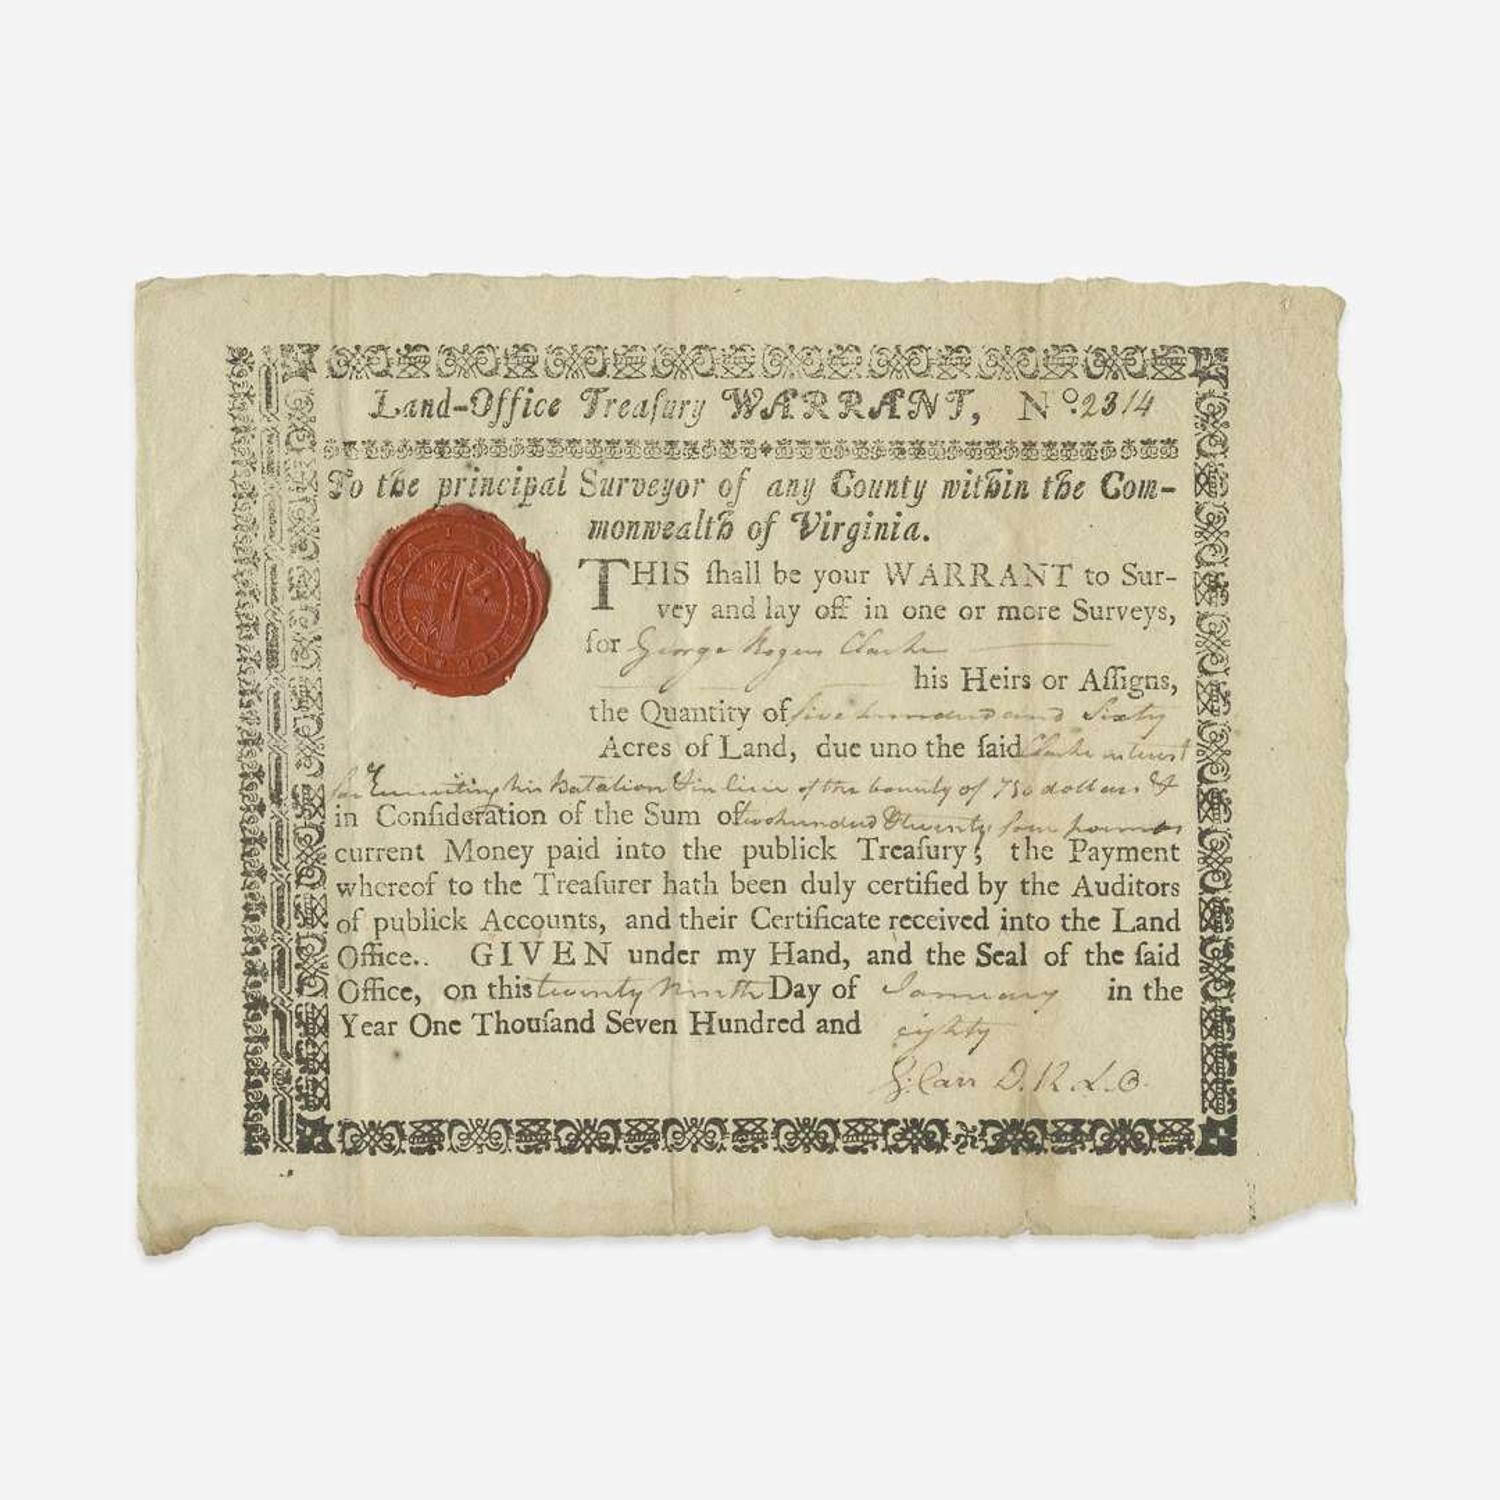 Land-Office Treaſury WARRANT, No. 2314
To the principal Surveyor of any County within the Com-
monwealth of Virginia.
THIS ſhall be your WARRANT to Sur-
vey and lay off in one or more Surveys,
for George Rogers Clarke
his Heirs or Aſſigns,
the Quantity of five hundred and Sixty
Acres of Land, due uno the ſaid Clarke
his Batalion & in lieu of the bounty of 750 dollars &
in Conſideration of the Sum of two hundred & twenty four pounds
current Money paid into the publick Treaſury; the Payment
whereof to the Treaſurer hath been duly certified by the Auditors
of publick Accounts, and their Certificate received into the Land
Office.. GIVEN under my Hand, and the Seal of the ſaid
Office, on this twenty Ninth Day of January in the
Year One Thouſand Seven Hundred and eighty
S: Carr D. R. L. O.